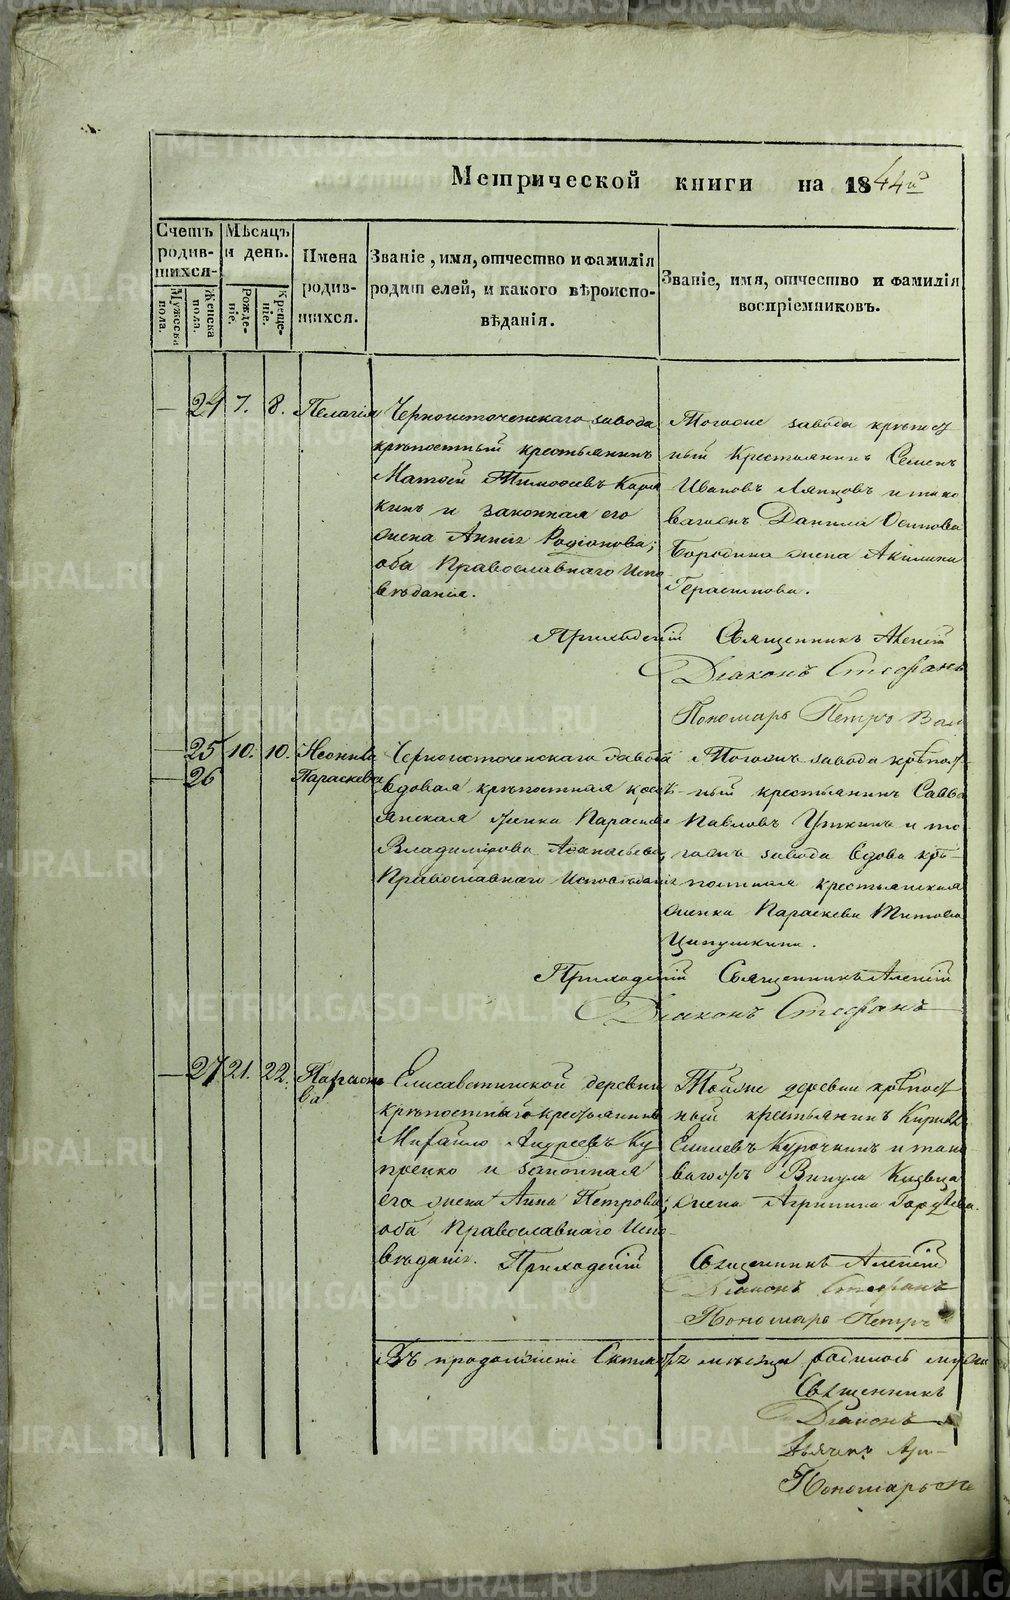 Метрической книги на 1844й
Счетъ родив-шихся.
Мѣсяцъ и день.
Имена родив-шихся.
Званіе, имя, отчество и фамилія родителей, и какого вѣроиспо-вѣданія.
Званіе, имя, отчество и фамилія воспріемниковъ.
Мужеска пола.
Женска пола.
Рожде-ніе.
Креще-ніе.
24 7. 8. Пелагія
Черноисточенскаго завода
крѣпостный крестьянинъ
Матфей Тимофеевъ
и законная его
жена Анна Родіонова;
оба Православнаго Испо
вѣданія.
Тогоже завода крѣпост
ный Крестьянинъ Семенъ
Ивановъ Ляпцовъ и тако
вагожъ Данила Осипова
Бородина жена Акилина
Герасимова.
Приходскій Священникъ Алексій
Діаконъ Стефанъ
Пономарь Петръ
25 10. 10. Неонила
26 Параскева
Черноисточенскаго завода
вдовая крѣпостная кресть
янская женка Параскева
Владимірова Афанасьева,
Православнаго Исповѣданія
Тогожъ завода крѣпост
ный крестьянинъ Савва
Павловъ Уткинъ и то
гожъ завода вдова крѣ-
постная крестьянская
женка Параскева Титова
Ципушкина.
Приходскій Священникъ Алексій
Діаконъ Стефанъ
27 21. 22. Параске
ва
Елисаветинской деревни
крѣпостный крестьянинъ
Михайло Андреевъ Ку
прейко и законная
его жена Анна Петрова;
оба Православнаго Испо-
вѣданія.
Тойже деревни крѣпост
ный крестьянинъ Кирилъ
Елисѣевъ Курочкинъ и тако
вагожъ Викула
жена Агрипина Гордѣева.
Приходскій Священникъ Алексій
Діаконъ Стефанъ
Пономарь Петръ
Въ продолженіи мѣсяца родилось
Священникъ
Діаконъ
Дьячекъ
Пономарь
METRIKI.GASO-URAL.RU